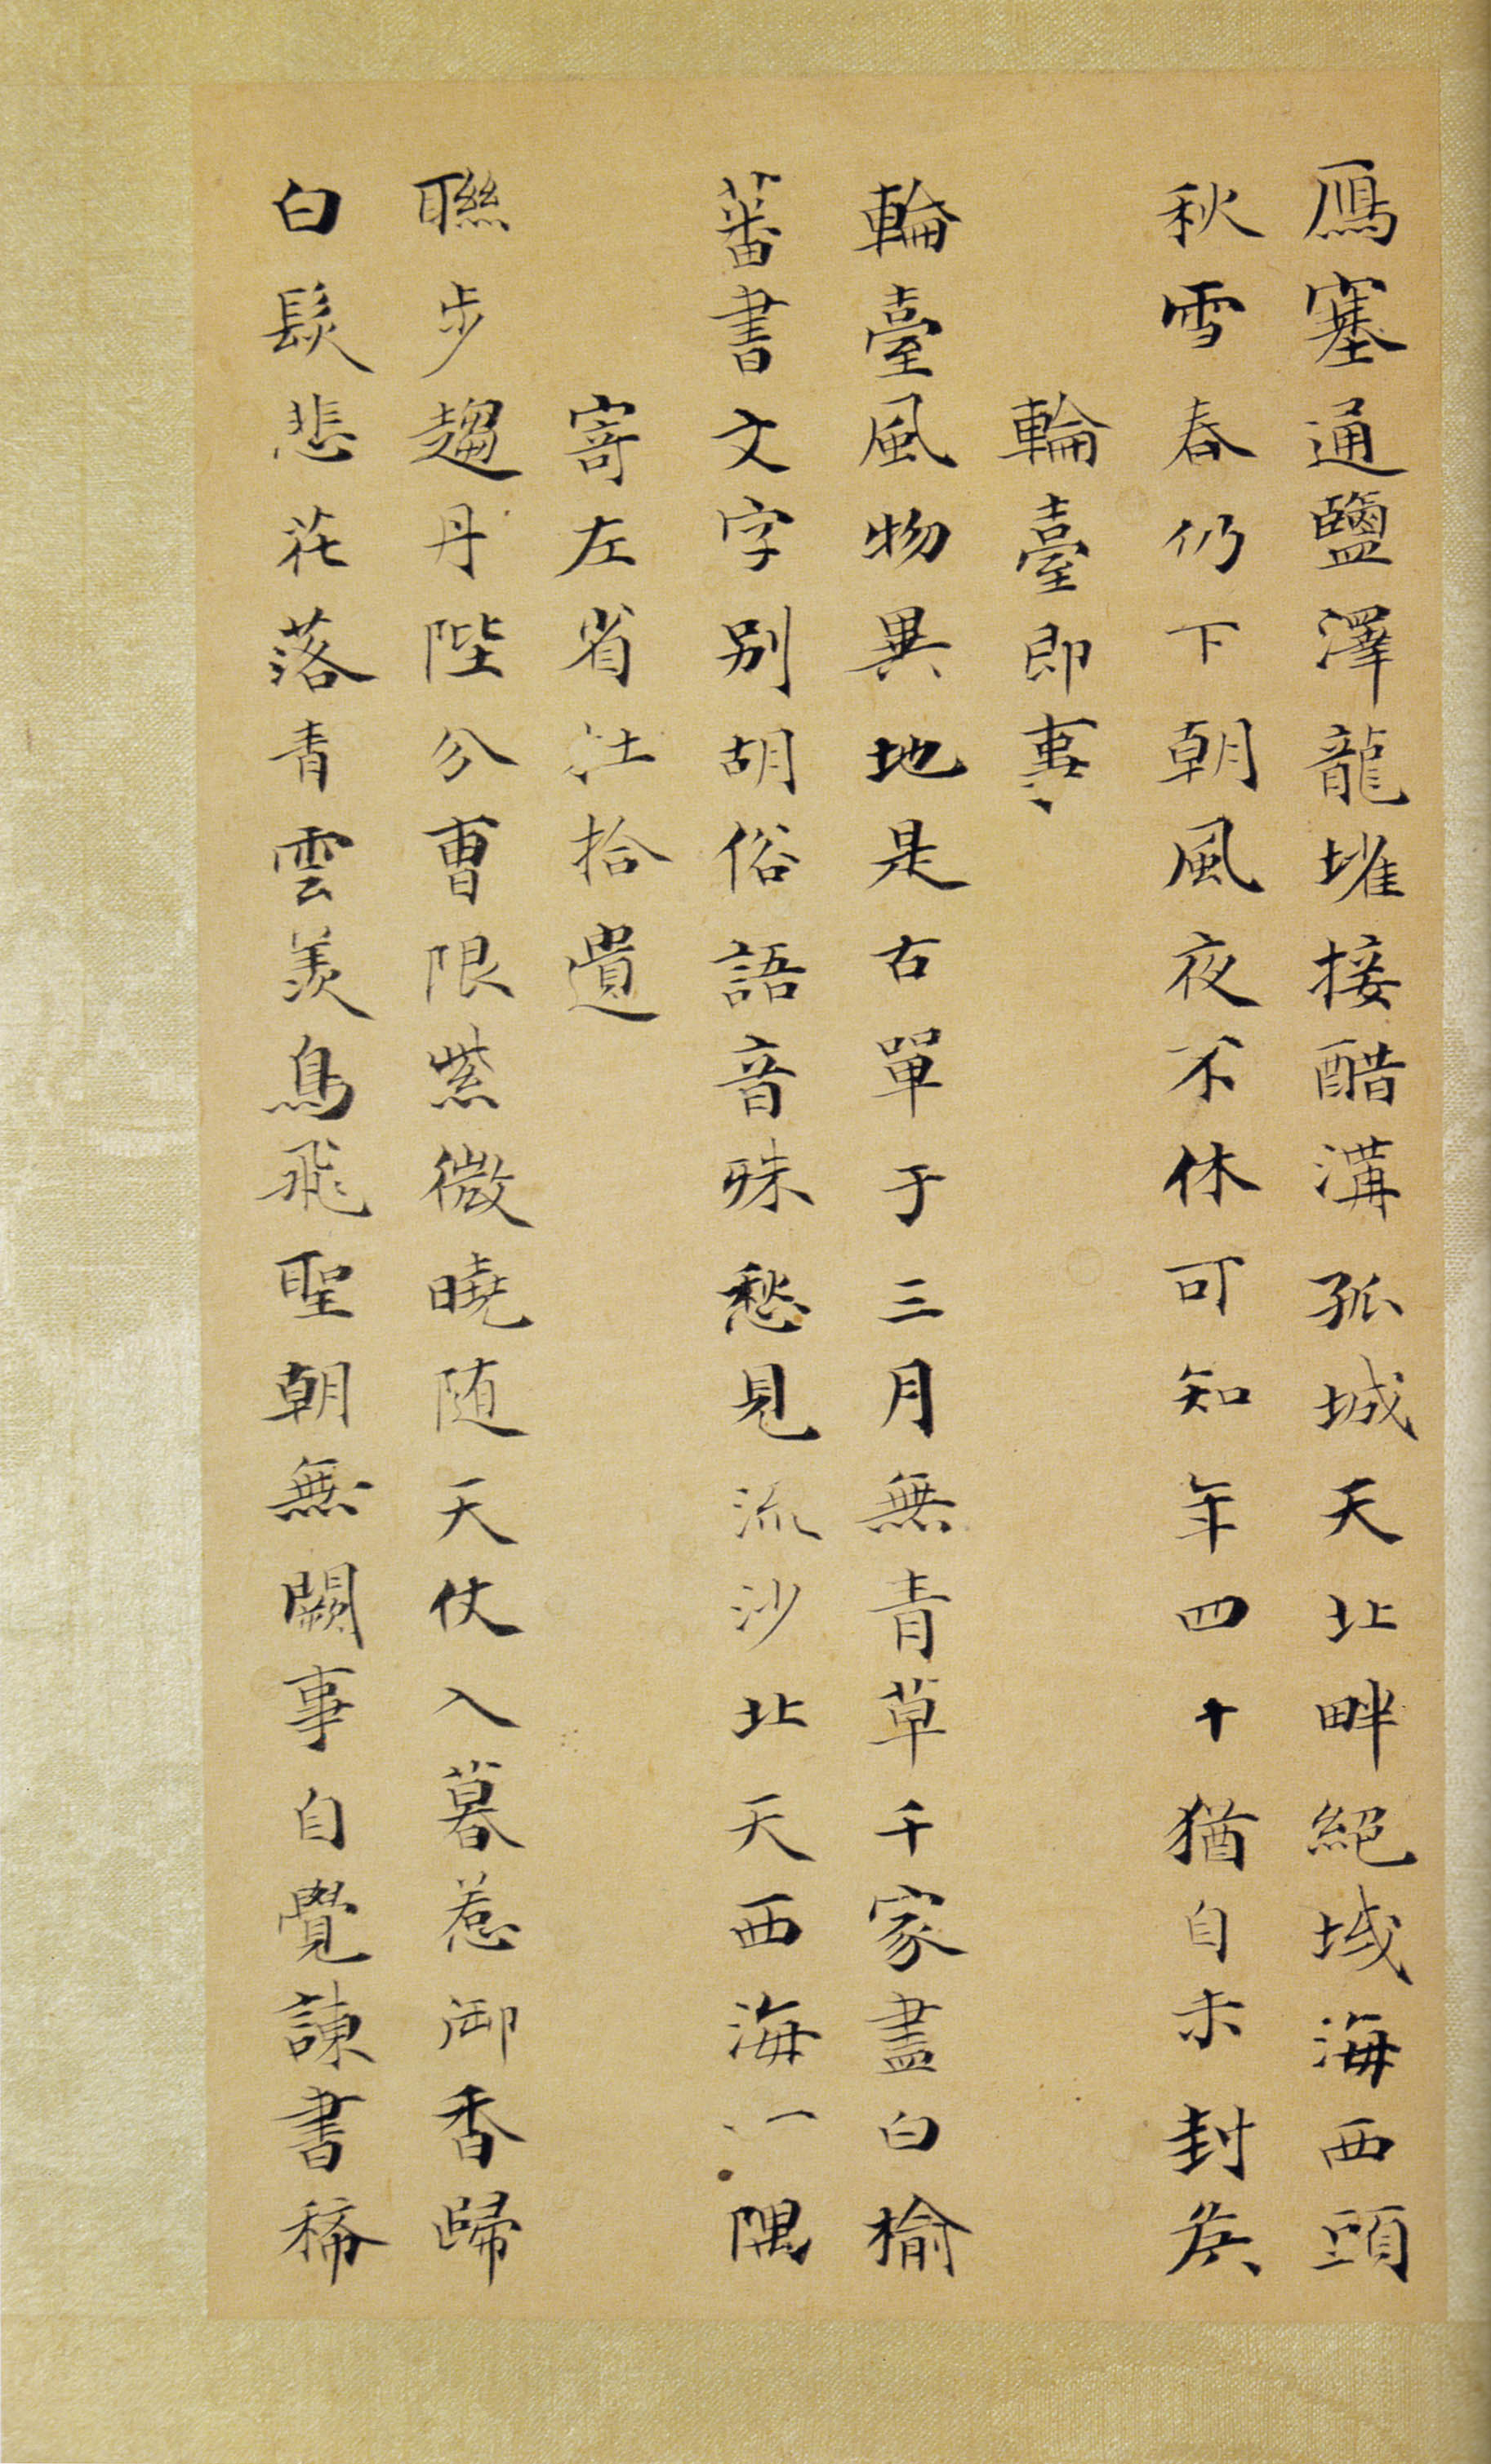 鴈塞通鹽澤龍堆接醋溝孤城天北畔絕域海西頭
秋雪春仍下朝風夜不休可知年四十猶自未封矦
輪臺即事
輪臺風物異地是古單于三月無青草千家盡白榆
蕃書文字別胡俗語音殊愁見流沙北天西海一隅
寄左省汪拾遺
聯步趨丹陛分曹限紫微曉随天仗入暮惹御香歸
白髮悲花落青雲羨鳥飛聖朝無闕事自覺諫書稀